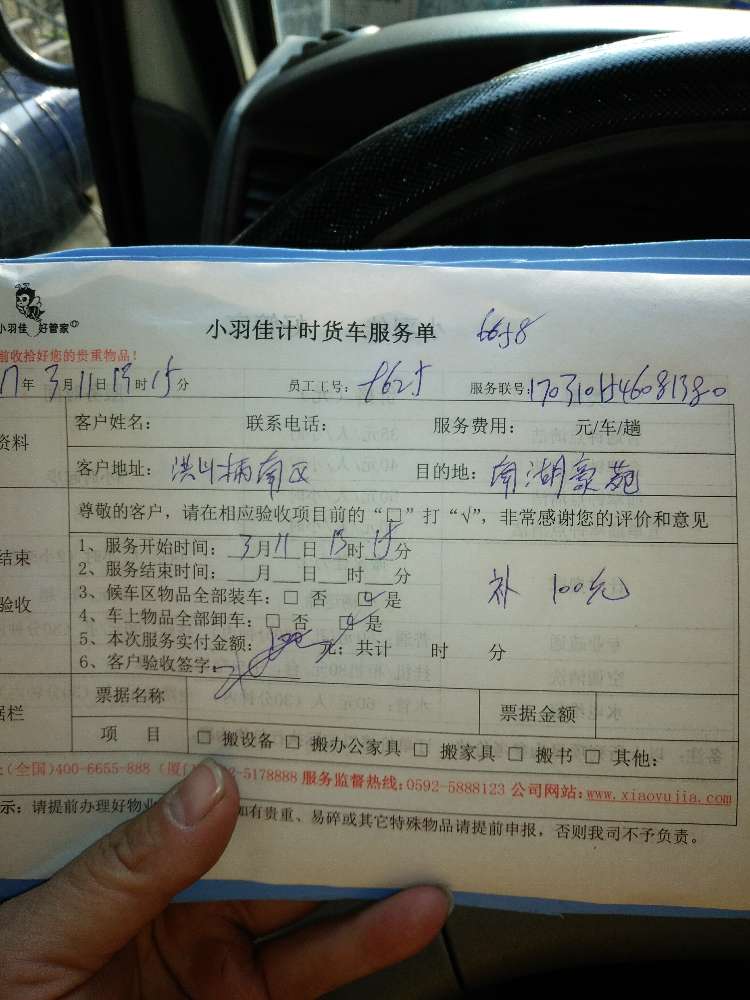 小羽佳 好管家©
小羽佳计时货车服务单 6658
前收拾好您的贵重物品！
17年3月11日13时15分 员工工号：8625 服务联号：1703101546081380
资料
客户姓名： 联系电话： 服务费用： 元/车/趟
客户地址：洪山柄南区 目的地：南湖豪苑
尊敬的客户，请在相应验收项目前的“□”打“√”，非常感谢您的评价和意见
结束
验收
1、服务开始时间：3月11日13时15分
2、服务结束时间：___月___日___时___分
3、候车区物品全部装车：□ 否 ☑ 是
4、车上物品全部卸车：□ 否 ☑ 是
5、本次服务实付金额：100元；共计 时 分
6、客户验收签字：
补 100元
据栏
票据名称 票据金额
项 目 □ 搬设备 □ 搬办公家具 □ 搬家具 □ 搬书 □ 其他：
：(全国)400-6655-888 (厦门 2-5178888 服务监督热线：0592-5888123 公司网站：www.xiaoyujia.com
示：请提前办理好物业 如有贵重、易碎或其它特殊物品请提前申报，否则我司不予负责。